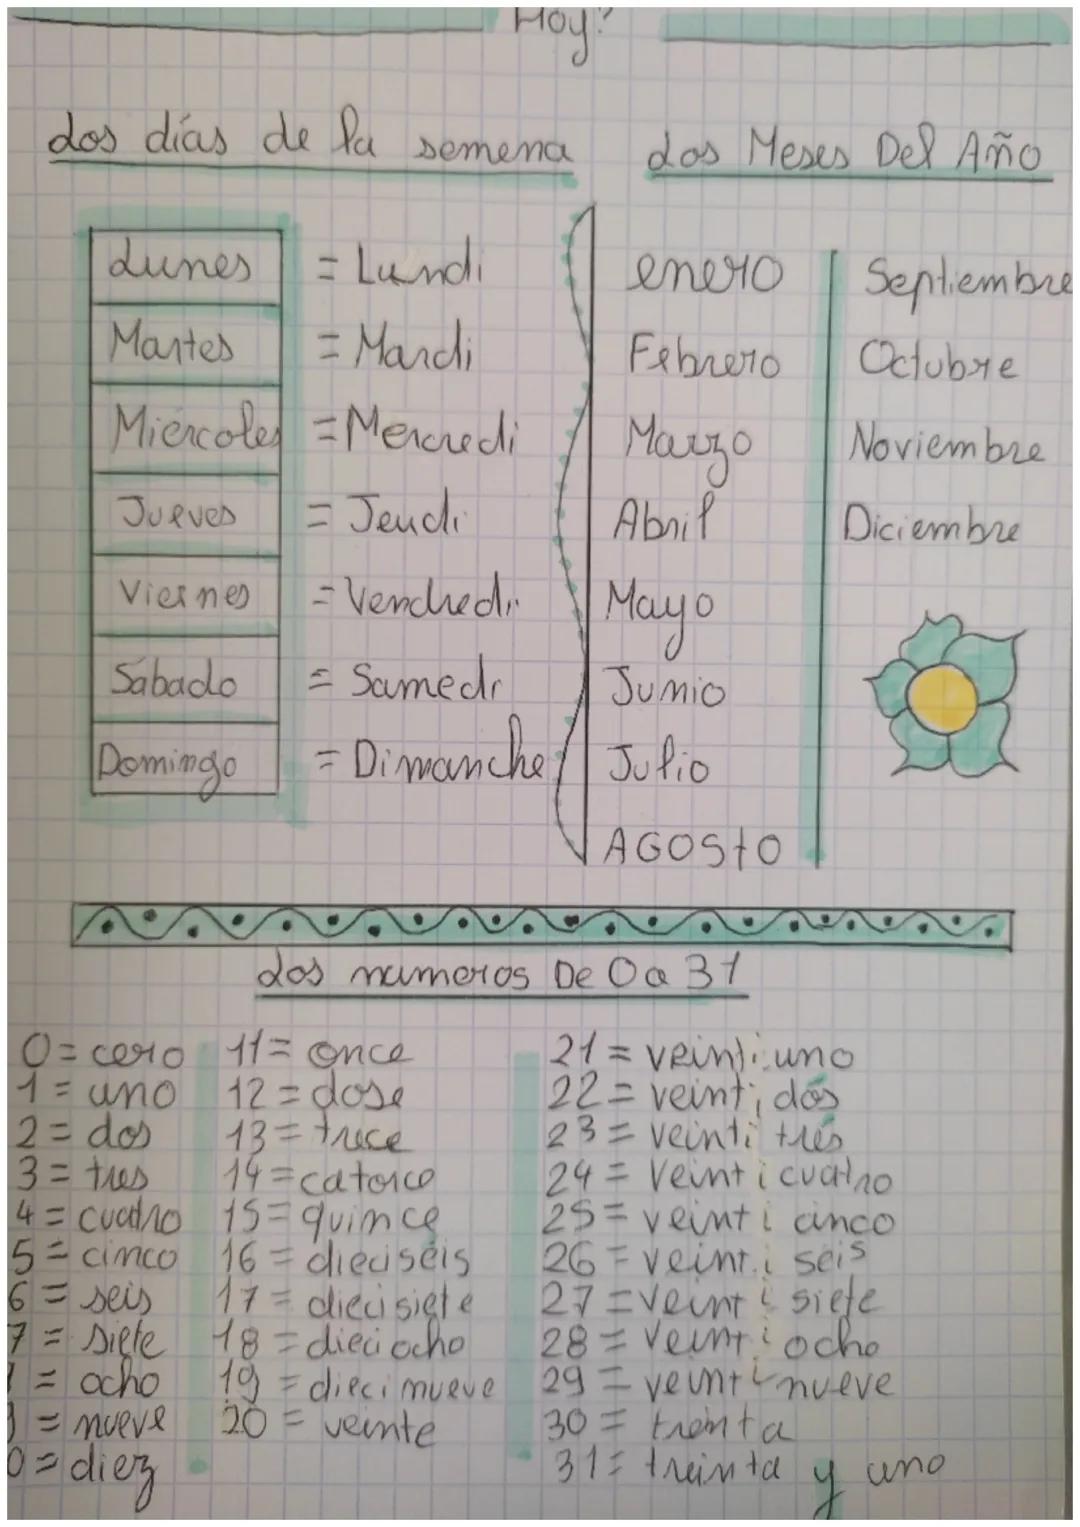 Hoy?
Los días de la semena
Los Meses Del Año
Lunes = Lundi
Martes = Mardi
Miércoles = Mercredi
Jueves = Jeudi
Viernes = Vendredi
Sábado = Samedi
Domingo = Dimanche
enero
Febrero
Marzo
Abril
Mayo
Junio
Julio
AGOSTO
Septiembre
Octubre
Noviembre
Diciembre
Los numeros De 0 a 31
0 = cero
1 = uno
2 = dos
3 = tres
4 = cuatro
5 = cinco
6 = seis
7 = siete
= ocho
= nueve
0 = diez
11 = once
12 = dose
13 = trece
14 = catorce
15 = quince
16 = dieciséis
17 = diecisiete
18 = dieciocho
19 = diecinueve
20 = veinte
21 = veinti uno
22 = veinti dós
23 = veinti trés
24 = veinti cuatro
25 = veinti cinco
26 = veinti seis
27 = veinti siete
28 = veinti ocho
29 = veinti nueve
30 = trenta
31 = treinta y uno